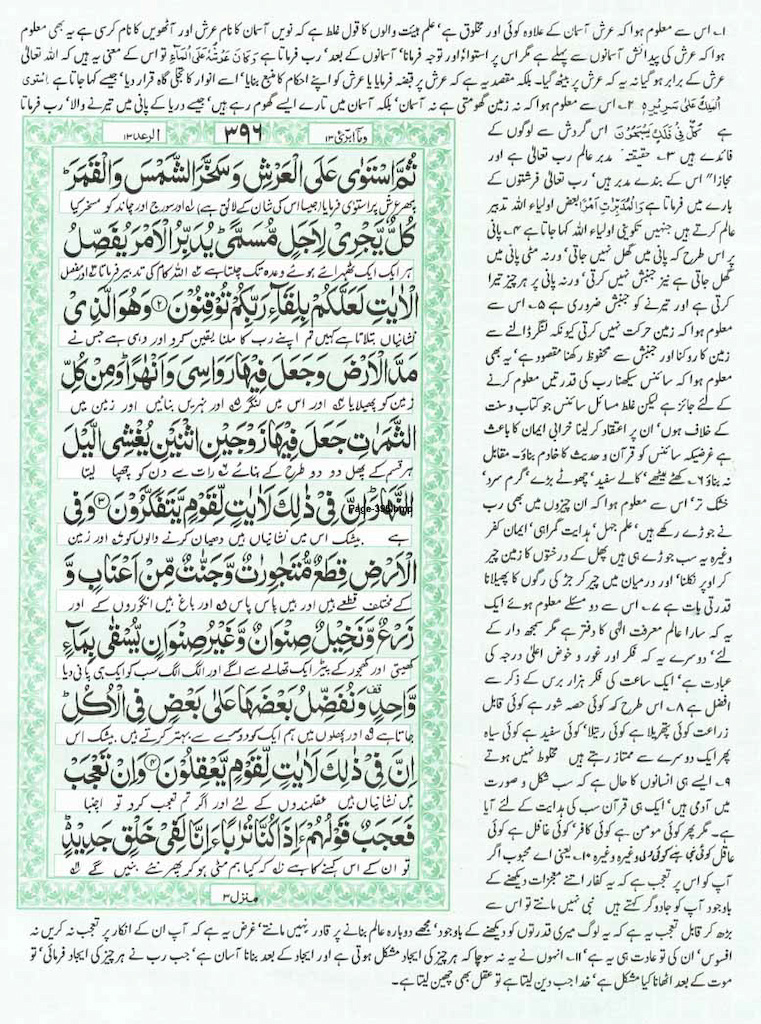 ۱۔ اس سے معلوم ہوا کہ عرش آسمان کے علاوہ کوئی اور مخلوق ہے، علم ہیئت والوں کا قول غلط ہے کہ نویں آسمان کا نام عرش اور آٹھویں کا نام کرسی ہے یہ بھی معلوم
ہوا کہ عرش کی پیدائش آسمانوں سے پہلے ہے مگر اس پر استوا، اور توجہ فرمانا، آسمانوں کے بعد، رب فرماتا ہے وَكَانَ عَرْشُهٗ عَلَى الْمَآءِ تو اس کے معنی یہ ہیں کہ اللہ تعالٰی
عرش کے برابر ہو گیا نہ یہ کہ عرش پر بیٹھ گیا۔ بلکہ مقصد یہ ہے کہ عرش پر قبضہ فرمایا یا عرش کو اپنے احکام کا منبع بنایا، اسے انوار کا تجلی گاہ قرار دیا، جیسے کہا جاتا ہے اِسْتَوٰی
الْمَلِكُ عَلٰى سَرِيْرِهٖ ۲۔ اس سے معلوم ہوا کہ نہ زمین گھومتی ہے نہ آسمان، بلکہ آسمان میں تارے ایسے گھوم رہے ہیں، جیسے دریا کے پانی میں تیرنے والا، رب فرماتا
وما ابرئ ۱۳
۳۹۶
الرعد ۱۳
ثُمَّ اسْتَوٰى عَلَى الْعَرْشِ وَسَخَّرَ الشَّمْسَ وَالْقَمَرَ
پھر عرش پر استوٰی فرمایا (جیسا اس کی شان کے لائق ہے) اور سورج اور چاند کو مسخر کیا
كُلٌّ يَّجْرِيْ لِاَجَلٍ مُّسَمًّى يُدَبِّرُ الْاَمْرَ يُفَصِّلُ
ہر ایک ایک ٹھہرائے ہوئے وعدہ تک چلتا ہے اللہ کام کی تدبیر فرماتا اور مفصل
الْاٰيٰتِ لَعَلَّكُمْ بِلِقَآءِ رَبِّكُمْ تُوْقِنُوْنَ ۲ وَهُوَ الَّذِيْ
نشانیاں بتلاتا ہے کہیں تم اپنے رب کا ملنا یقین کرو اور وہی ہے جس نے
مَدَّ الْاَرْضَ وَجَعَلَ فِيْهَا رَوَاسِيَ وَاَنْهٰرًا وَمِنْ كُلِّ
زمین کو پھیلایا اور اس میں لنگر اور نہریں بنائیں اور زمین میں
الثَّمَرٰتِ جَعَلَ فِيْهَا زَوْجَيْنِ اثْنَيْنِ يُغْشِي الَّيْلَ
ہر قسم کے پھل دو دو طرح کے بنائے رات سے دن کو چھپا لیتا
النَّهَارَ اِنَّ فِيْ ذٰلِكَ لَاٰيٰتٍ لِّقَوْمٍ يَّتَفَكَّرُوْنَ ۳ وَفِي
Page-396.bmp
ہے بیشک اس میں نشانیاں ہیں دھیان کرنے والوں کو اور زمین
الْاَرْضِ قِطَعٌ مُّتَجٰوِرٰتٌ وَّجَنّٰتٌ مِّنْ اَعْنَابٍ وَّ
کے مختلف قطعے ہیں اور ہیں پاس پاس اور باغ ہیں انگوروں کے اور
زَرْعٌ وَّنَخِيْلٌ صِنْوَانٌ وَّغَيْرُ صِنْوَانٍ يُّسْقٰى بِمَآءٍ
کھیتی اور کھجور کے پیڑ ایک تھالے سے اگے اور الگ الگ سب کو ایک ہی پانی دیا
وَّاحِدٍ وَنُفَضِّلُ بَعْضَهَا عَلٰى بَعْضٍ فِي الْاُكُلِ
جاتا ہے اور پھلوں میں ہم ایک کو دوسرے سے بہتر کرتے ہیں بیشک اس
اِنَّ فِيْ ذٰلِكَ لَاٰيٰتٍ لِّقَوْمٍ يَّعْقِلُوْنَ ۴ وَاِنْ تَعْجَبْ
میں نشانیاں ہیں عقلمندوں کے لئے اور اگر تم تعجب کرو تو اچنبا
فَعَجَبٌ قَوْلُهُمْ ءَاِذَا كُنَّا تُرٰبًا ءَاِنَّا لَفِيْ خَلْقٍ جَدِيْدٍ
تو ان کے اس کہنے کا ہے کہ کیا ہم مٹی ہو کر پھر نئے بنیں گے
منزل ۳
ہے كُلٌّ فِيْ فَلَكٍ يَّسْبَحُوْنَ اس گردش سے لوگوں کے
فائدے ہیں ۳۔ حقیقتہ" مدبر عالم رب تعالٰی ہے اور
مجازا" اس کے بندے مدبر ہیں، رب تعالٰی فرشتوں کے
بارے میں فرماتا ہے وَالْمُدَبِّرٰتِ اَمْرًا بعض اولیاء اللہ تدبیر
عالم کرتے ہیں جنہیں تکوینی اولیاء اللہ کہا جاتا ہے ۴۔ پانی
پر اس طرح کہ پانی میں گھل نہیں جاتی، ورنہ مٹی پانی میں
گھل جاتی ہے نیز جنبش نہیں کرتی، ورنہ پانی پر ہر چیز تیرا
کرتی ہے اور تیرنے کو جنبش ضروری ہے ۵۔ اس سے
معلوم ہوا کہ زمین حرکت نہیں کرتی کیونکہ لنگر ڈالنے سے
زمین کا روکنا اور جنبش سے محفوظ رکھنا مقصود ہے، یہ بھی
معلوم ہوا کہ سائنس سیکھنا رب کی قدرتیں معلوم کرنے
کے لئے جائز ہے لیکن غلط مسائل سائنس جو کتاب و سنت
کے خلاف ہوں، ان پر اعتقاد کر لینا خرابی ایمان کا باعث
ہے غرضیکہ سائنس کو قرآن و حدیث کا خادم بناؤ۔ مقابل
نہ بناؤ ۶۔ کھٹے میٹھے، کالے سفید، چھوٹے بڑے، گرم سرد،
خشک تر، اس سے معلوم ہوا کہ ان چیزوں میں بھی رب
نے جوڑے رکھے ہیں، علم جہل، ہدایت گمراہی، ایمان کفر
وغیرہ یہ سب جوڑے ہی ہیں پھل کے درختوں کا زمین چیر
کر اوپر نکلنا، اور درمیان میں چیر کر جڑ کی رگوں کا پھیلانا
قدرتی بات ہے ۷۔ اس سے دو مسئلے معلوم ہوئے ایک
یہ کہ سارا عالم معرفت الٰہی کا دفتر ہے مگر سمجھ دار کے
لئے، دوسرے یہ کہ فکر اور غور و خوض اعلیٰ درجہ کی
عبادت ہے، ایک ساعت کی فکر ہزار برس کے ذکر سے
افضل ہے ۸۔ اس طرح کہ کوئی حصہ شور ہے کوئی قابل
زراعت کوئی پتھریلا ہے کوئی رتیلا، کوئی سفید ہے کوئی سیاہ
پھر ایک دوسرے سے ممتاز رہتے ہیں مخلوط نہیں ہوتے
۹۔ ایسے ہی انسانوں کا حال ہے کہ سب شکل و صورت
میں آدمی ہیں، ایک ہی قرآن سب کی ہدایت کے لئے آیا
ہے۔ مگر پھر کوئی مومن ہے کوئی کافر، کوئی غافل ہے کوئی
عاقل کوئی وغیرہ وغیرہ ۱۰۔ یعنی اے محبوب اگر
آپ کو اس پر تعجب ہے کہ یہ کفار اتنے معجزات دیکھنے کے
باوجود آپ کو جادوگر کہتے ہیں نبی نہیں مانتے تو اس سے
بڑھ کر قابل تعجب یہ ہے کہ یہ لوگ میری قدرتوں کو دیکھنے کے باوجود، مجھے دوبارہ عالم بنانے پر قادر نہیں مانتے، غرض یہ ہے کہ آپ ان کے انکار پر تعجب نہ کریں نہ
افسوس، ان کی تو عادت ہی یہ ہے، ۱۱۔ انہوں نے یہ نہ سوچا کہ ہر چیز کی ایجاد مشکل ہوتی ہے اور ایجاد کے بعد بنانا آسان ہے، جب رب نے ہر چیز کی ایجاد فرمائی، تو
موت کے بعد اٹھانا کیا مشکل ہے، خدا جب دین لیتا ہے تو عقل بھی چھین لیتا ہے۔